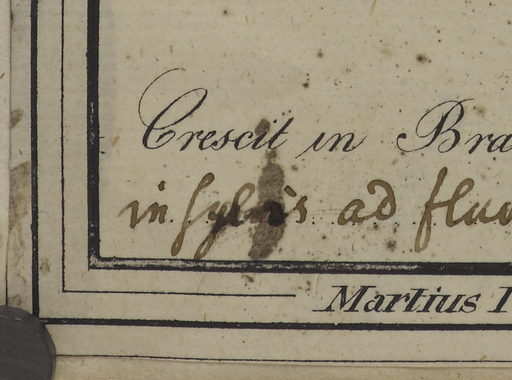 Crescit in Bra
in sylvis ad fluv
Martius I